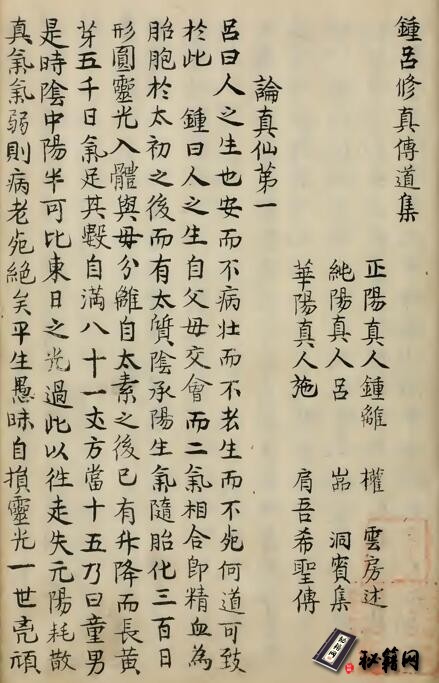 鍾呂修真傳道集
正陽真人鍾離 權 雲房述
純陽真人呂 嵒 洞賓集
華陽真人施 肩吾希聖傳
論真仙第一
呂曰人之生也安而不病壯而不老生而不死何道可致
於此 鍾曰人之生自父母交會而二氣相合即精血為
胎胞於太初之後而有太質陰承陽生氣隨胎化三百日
形圓靈光入體與母分離自太素之後已有升降而長黃
芽五千日氣足其數自滿八十一丈方當十五乃曰童男
是時陰中陽半可比東日之光過此以徃走失元陽耗散
真氣氣弱則病老死絕矣平生愚昧自損靈光一世兇頑
秘籍网